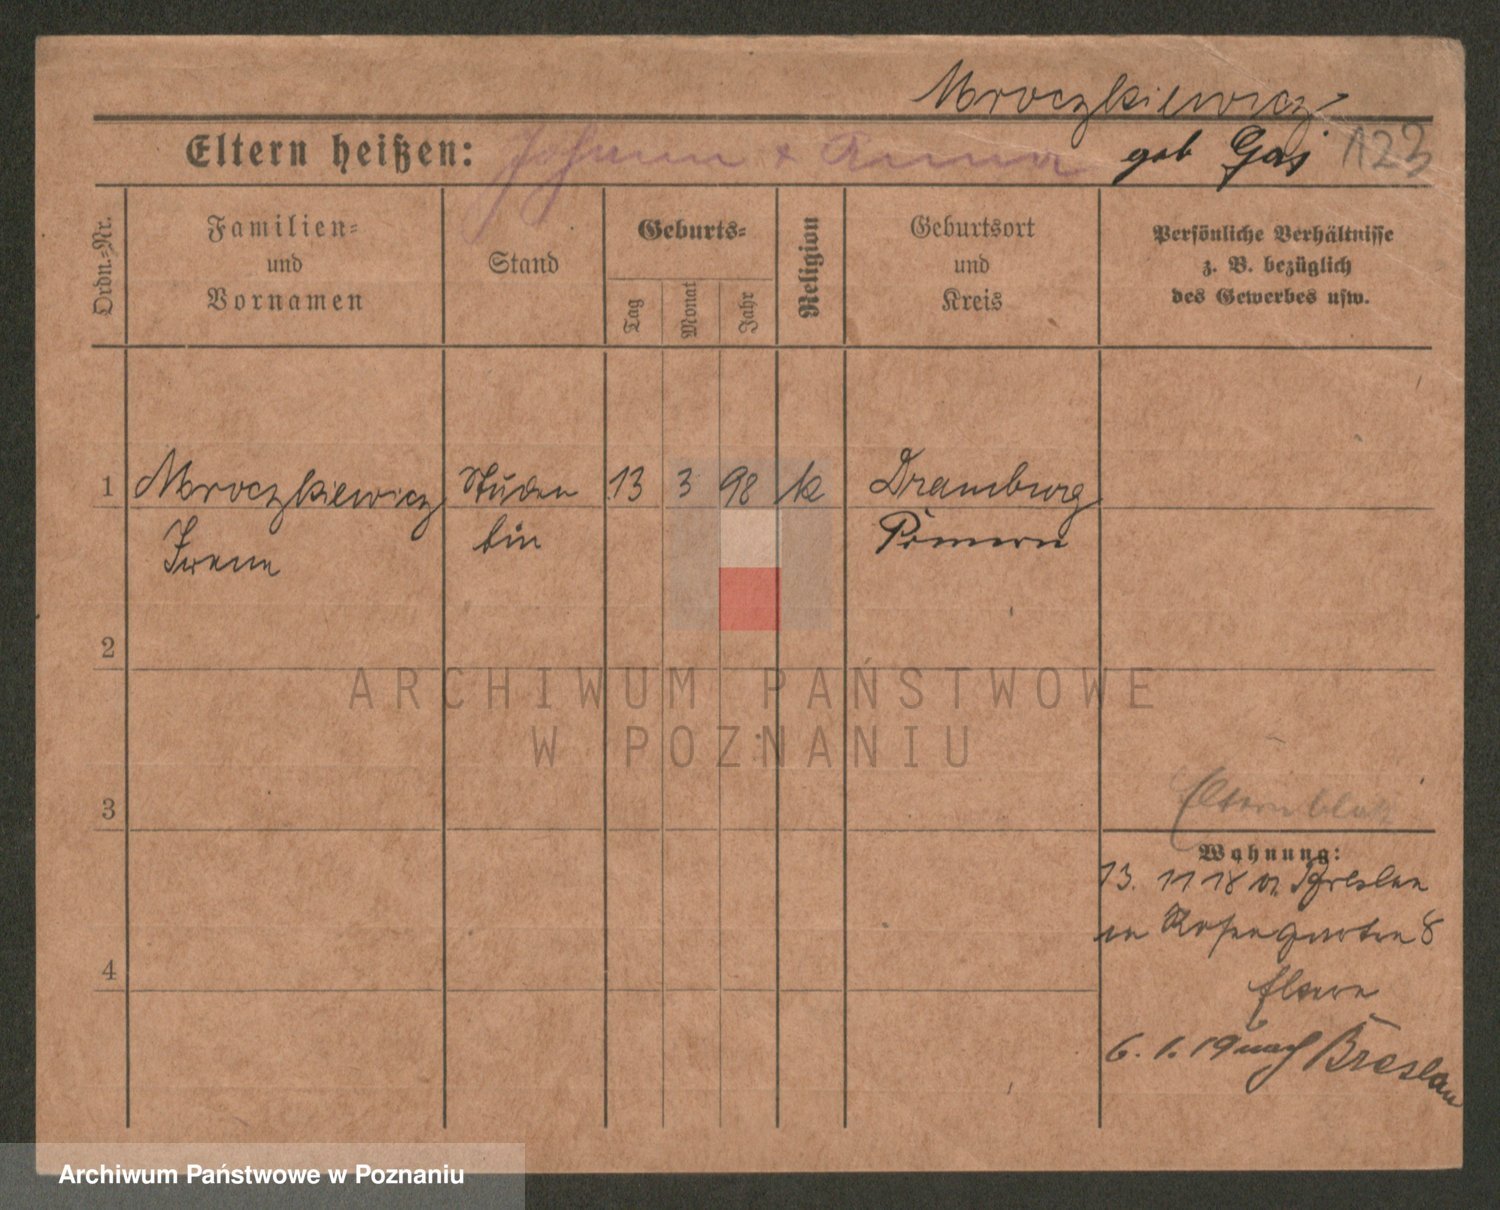 Mroczkiewicz
Eltern heißen: Johann + Anna geb Gaj 123
Ordn.-Nr.
Familien-
und
Vornamen
Stand
Geburts-
Tag
Monat
Jahr
Religion
Geburtsort
und
Kreis
Persönliche Verhältnisse
z. B. bezüglich
des Gewerbes usw.
1 Mroczkiewicz Studen 13 3 98 k Dramburg
Irene tin Pomern
2
ARCHIWUM PAŃSTWOWE
W POZNANIU
3
Elternblatt
Wohnung:
13. 11 18 v. Breslau
Rosengarten 8
4
Eltern
6. 1. 19 nach Breslau
Archiwum Państwowe w Poznaniu